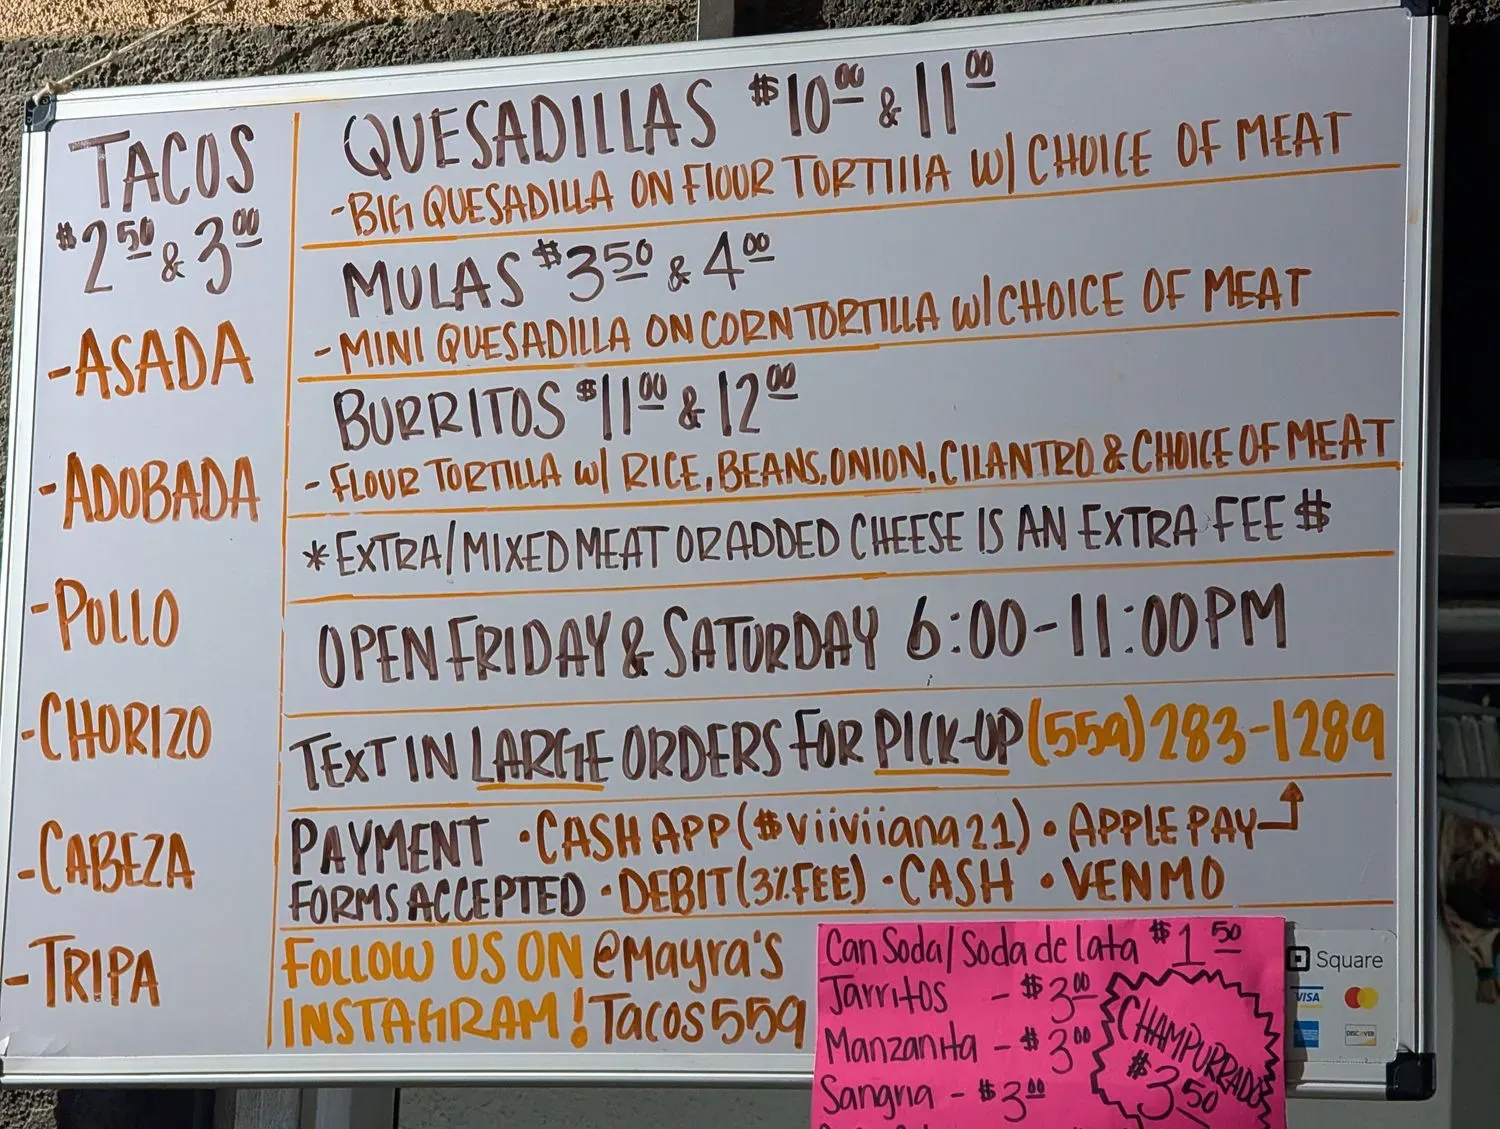 TACOS
$2.50 & 3.00
-ASADA
-ADOBADA
-POLLO
-CHORIZO
-CABEZA
-TRIPA
QUESADILLAS $10.00 & 11.00
-BIG QUESADILLA ON FLOUR TORTILLA W/ CHOICE OF MEAT
MULAS $3.50 & 4.00
-MINI QUESADILLA ON CORN TORTILLA W/CHOICE OF MEAT
BURRITOS $11.00 & 12.00
-FLOUR TORTILLA W/ RICE, BEANS, ONION, CILANTRO & CHOICE OF MEAT
*EXTRA/MIXED MEAT OR ADDED CHEESE IS AN EXTRA FEE $
OPEN FRIDAY & SATURDAY 6:00-11:00PM
TEXT IN LARGE ORDERS FOR PICK-UP (559)283-1289
PAYMENT •CASH APP ($viiviiana21) •APPLE PAY
FORMS ACCEPTED •DEBIT (3% FEE) •CASH •VENMO
FOLLOW US ON @Mayra's
INSTAGRAM! Tacos559
Can Soda/Soda de lata $1.50
Jarritos - $3.00
Manzanita - $3.00
Sangria - $3.00
CHAMPURRADO
$3.50
Square
VISA
DISCOVER